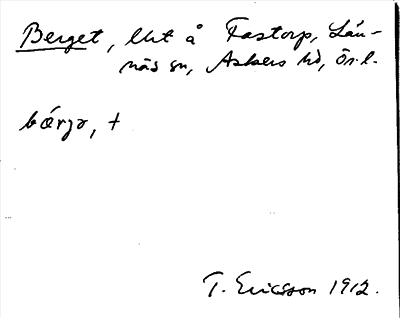 Berget, lht å Fastorp, Län-
näs sn, Askers hd, Ör. l.
bárjə, t
T. Ericsson 1912.